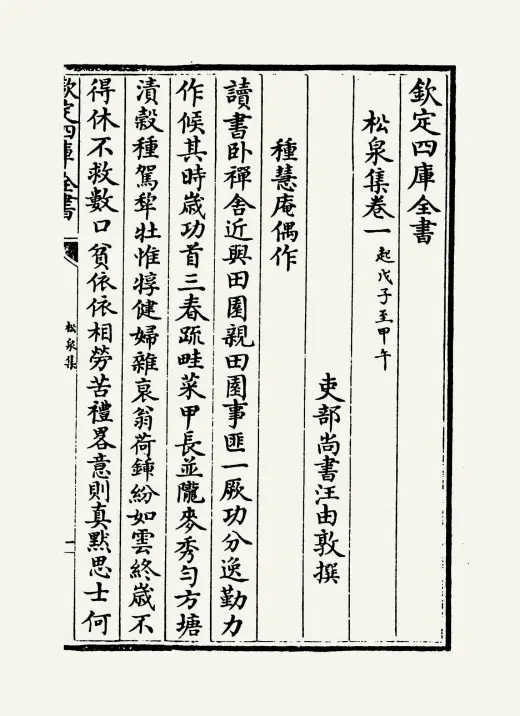 欽定四庫全書
松泉集卷一 起戊子至甲午
吏部尚書汪由敦撰
種慧庵偶作
讀書卧禪舎近與田園親田園事匪一厥功分逸勤力
作候其時歳功首三春疏畦菜甲長並隴麥秀匀方塘
漬穀種駕犂牡惟犉健婦雜衰翁荷鍤紛如雲終歳不
得休不救數口貧依依相勞苦禮畧意則真黙思士何
欽定四庫全書
松泉集
一